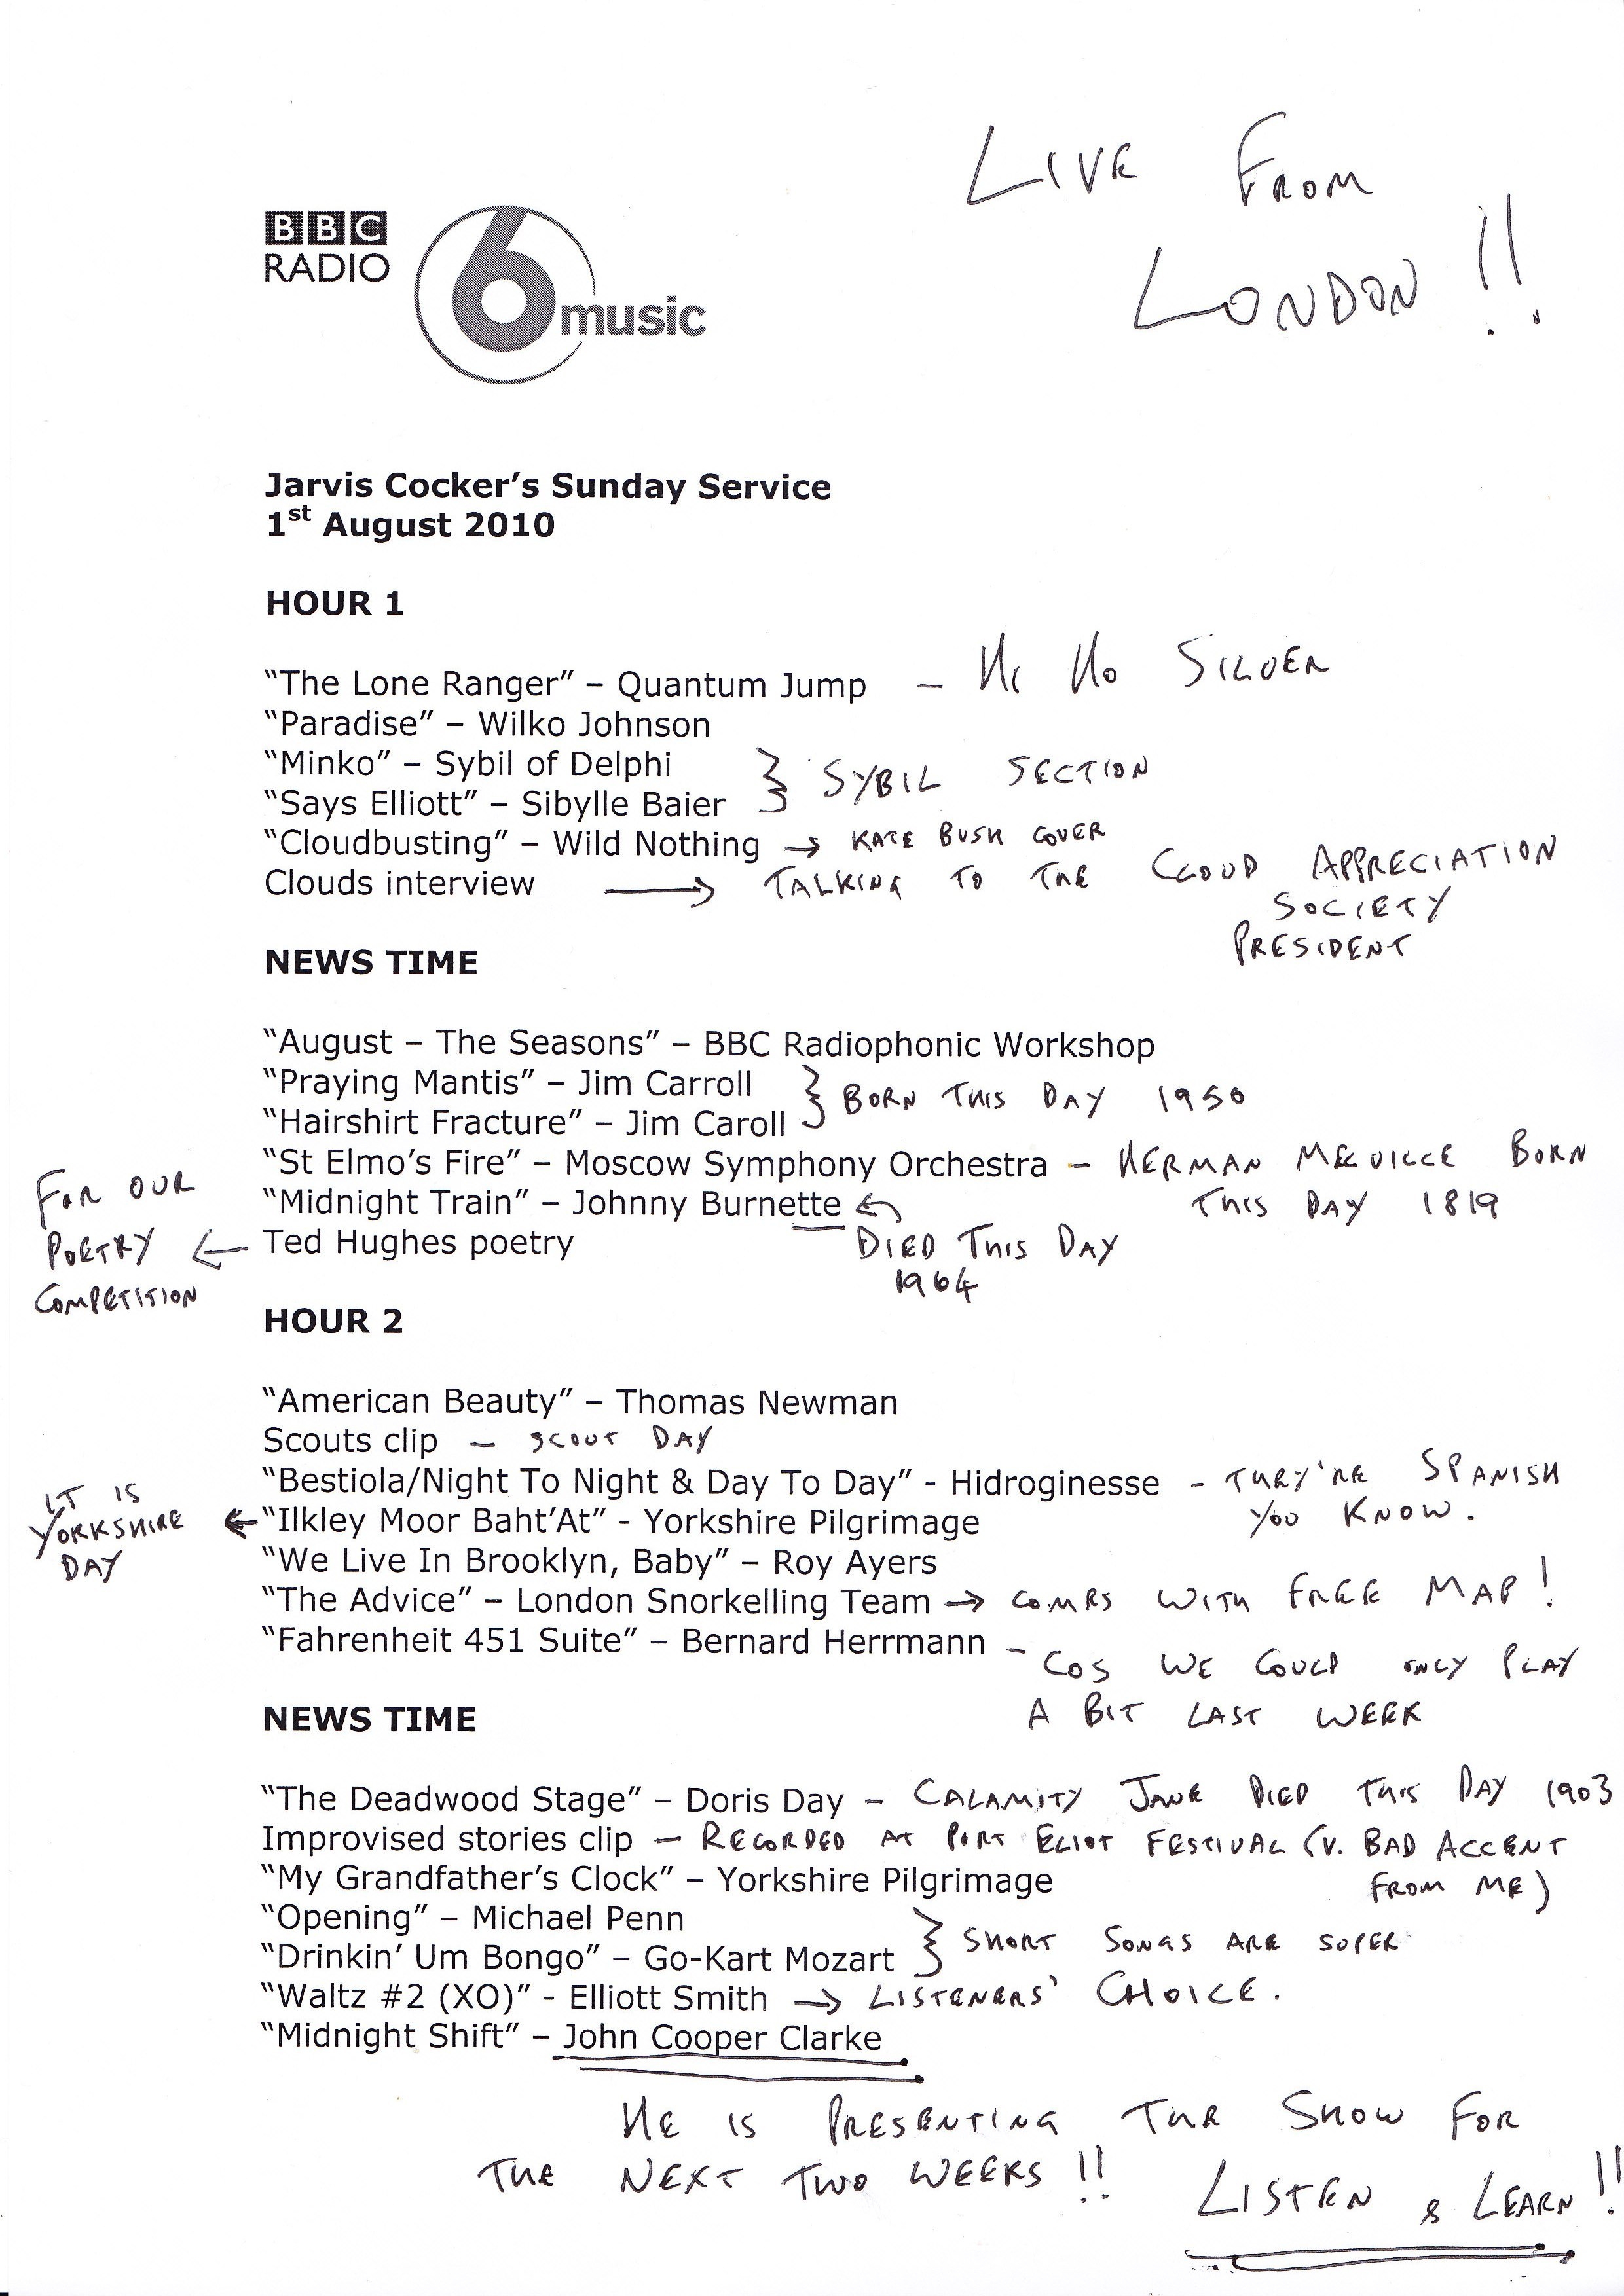 LIVE FROM
LONDON !!
BBC
RADIO
6music
Jarvis Cocker's Sunday Service
1st August 2010
HOUR 1
"The Lone Ranger" – Quantum Jump – HI HO SILVER
"Paradise" – Wilko Johnson
"Minko" – Sybil of Delphi
} SYBIL SECTION
"Says Elliott" – Sibylle Baier
"Cloudbusting" – Wild Nothing → KATE BUSH COVER
Clouds interview → TALKING TO THE CLOUD APPRECIATION
SOCIETY
PRESIDENT
NEWS TIME
"August – The Seasons" – BBC Radiophonic Workshop
"Praying Mantis" – Jim Carroll
} BORN THIS DAY 1950
"Hairshirt Fracture" – Jim Caroll
"St Elmo's Fire" – Moscow Symphony Orchestra – HERMAN MELVILLE BORN
THIS DAY 1819
"Midnight Train" – Johnny Burnette ←
DIED THIS DAY
1964
FOR OUR
POETRY ← Ted Hughes poetry
COMPETITION
HOUR 2
"American Beauty" – Thomas Newman
Scouts clip – SCOUT DAY
"Bestiola/Night To Night & Day To Day" - Hidroginesse - THEY'RE SPANISH
YOU KNOW.
IT IS
YORKSHIRE ← "Ilkley Moor Baht'At" - Yorkshire Pilgrimage
DAY
"We Live In Brooklyn, Baby" – Roy Ayers
"The Advice" – London Snorkelling Team → COMES WITH FREE MAP!
"Fahrenheit 451 Suite" – Bernard Herrmann – COS WE COULD ONLY PLAY
A BIT LAST WEEK
NEWS TIME
"The Deadwood Stage" – Doris Day – CALAMITY JANE DIED THIS DAY 1903
Improvised stories clip – RECORDED AT PORT ELIOT FESTIVAL (V. BAD ACCENT
FROM ME)
"My Grandfather's Clock" – Yorkshire Pilgrimage
"Opening" – Michael Penn
} SHORT SONGS ARE SUPER
"Drinkin' Um Bongo" – Go-Kart Mozart
"Waltz #2 (XO)" - Elliott Smith → LISTENERS' CHOICE.
"Midnight Shift" – John Cooper Clarke
HE IS PRESENTING THE SHOW FOR
THE NEXT TWO WEEKS !!
LISTEN & LEARN !!